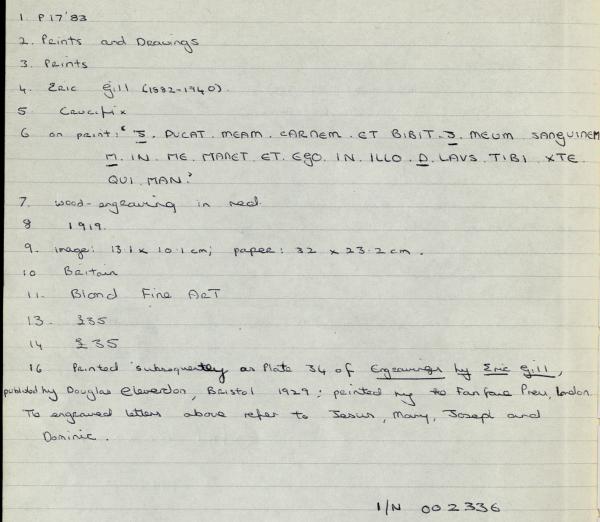 1. P 17'83
2. Prints and Drawings
3. Prints
4. Eric Gill (1882-1940).
5 Crucifix
6 on print: 'J. DUCAT. MEAM. CARNEM. ET BIBIT. J. MEUM SANGUINEM
M. IN. ME. MANET. ET. EGO. IN. ILLO. D. LAVS. TIBI. XTE.
QUI. MAN.'
7. wood-engraving in red.
8 1919.
9. image: 13.1 x 10.1 cm; paper: 32 x 23.2 cm.
10 Britain
11. Blond Fine ArT
13. £35
14 £35
16 Printed subsequently as Plate 34 of Engravings by Eric Gill,
published by Douglas Cleverdon, Bristol 1929; printed by the Fanfare Press, London.
To engraved letters above refer to Jesus, Mary, Joseph and
Dominic.
I/N 002336